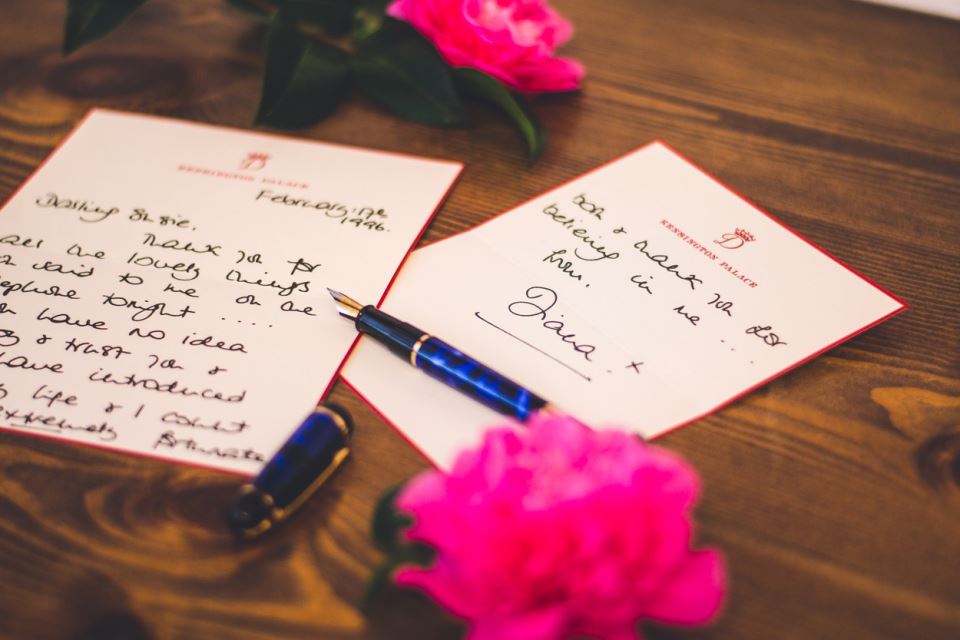 D
KENSINGTON PALACE
February, 17th
1996.
Darling Susie,
Thank you for
all the lovely things
said to me on the
telephone tonight ....
have no idea
& trust you &
have introduced
life & I count
extremely fortunate
D
KENSINGTON PALACE
both & thank you for
believing in me ...
from,
Diana. x